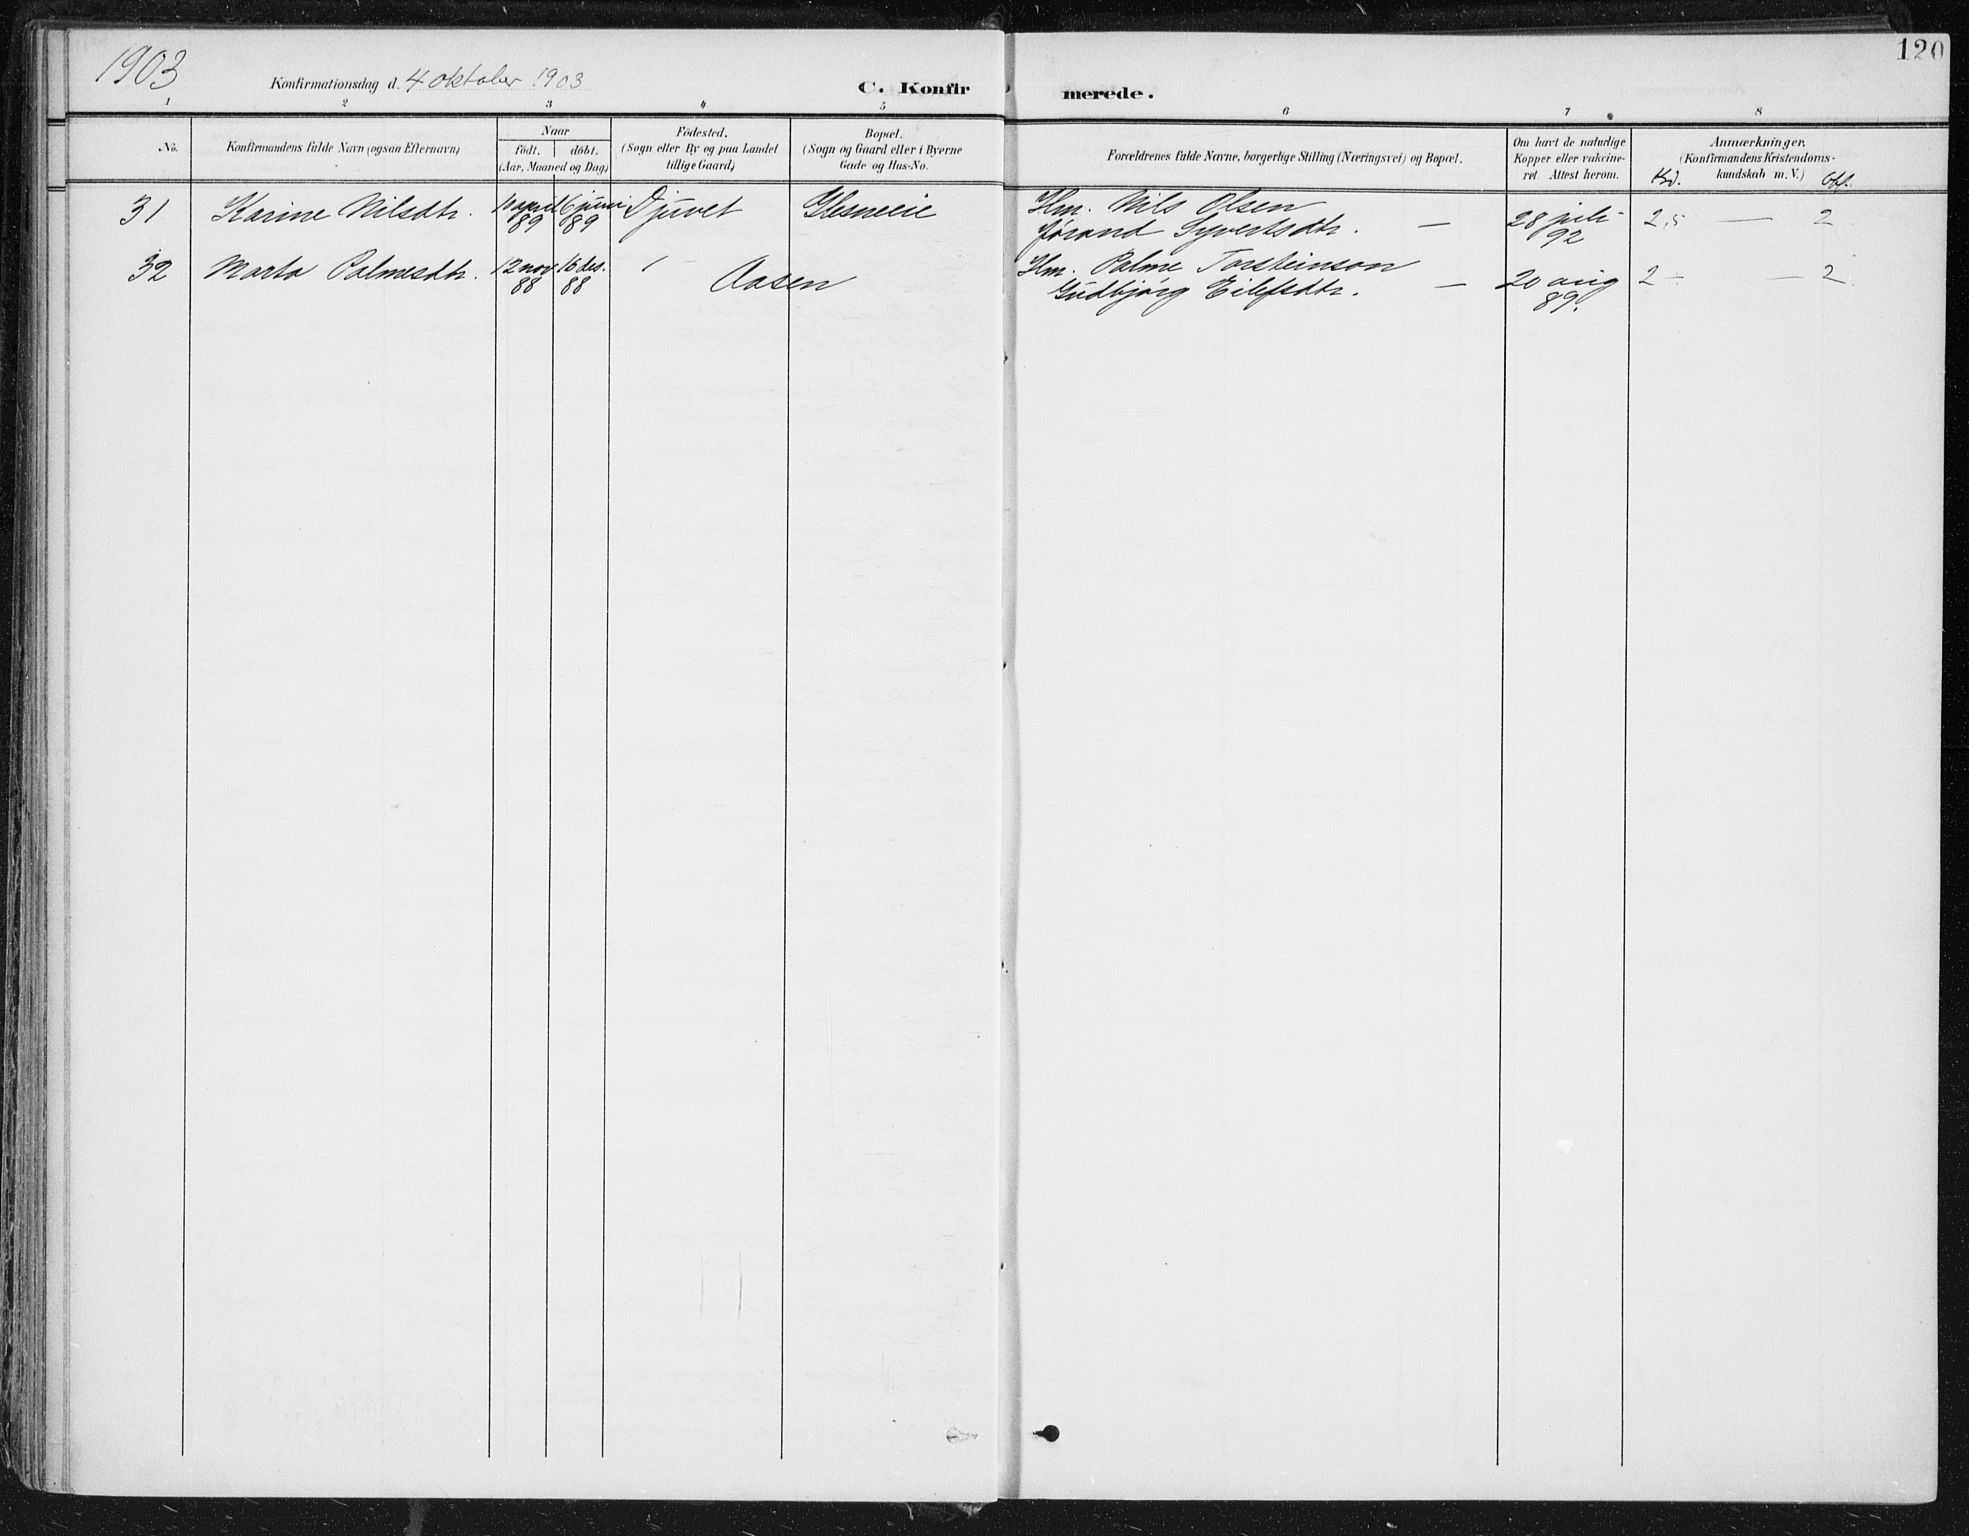 1903
Konfirmationsdag d. 4 oktober 1903
C. Konfirmerede.
120
1 2 3 4 5 6 7 8
No.
Konfirmandens fulde Navn (ogsaa Efternavn)
Naar
født. døbt.
(Aar, Maaned og Dag)
Fødested.
(Sogn eller By og paa Landet
tillige Gaard)
Bopæl.
(Sogn og Gaard eller i Byerne
Gade og Hus-No.
Forældrenes fulde Navne, borgerlige Stilling (Næringsvei) og Bopæl.
Om havt de naturlige
Kopper eller vakcine-
ret. Attest herom.
Anmærkninger.
(Konfirmandens Kristendoms-
kundskab m. V.)
Kd. Opf.
31 Karine Nilsdtr. april 89 16 juni 89 Djuvet Glesneeie Hm. Nils Olsen
Jørand Syvertsdtr. — 28 juli 92 2,5 — 2
32 Marta Palmesdtr. 12 nov 88 16 des. 88 Aasen Hm. Palme Torsteinson
Gudbjørg Eilefsdtr. — 20 aug 89. 2 — 2